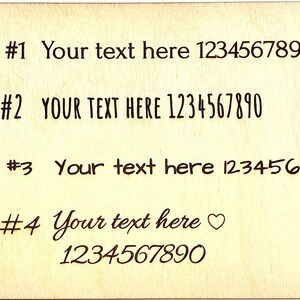 #1 Your text here 123456789
#2 YOUR TEXT HERE 1234567890
#3 Your text here 123456
#4 Your text here ♡
1234567890